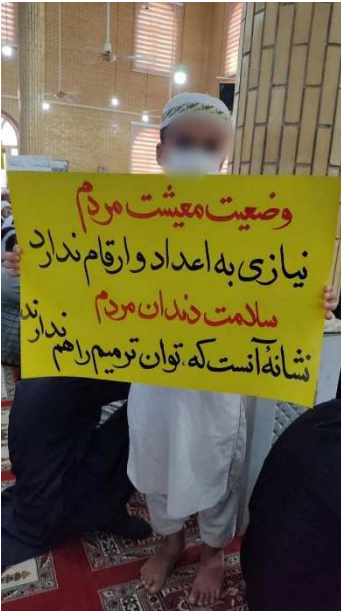 وضعیت معیشت مردم
نیازی به اعداد و ارقام ندارد
سلامت دندان مردم
نشانهٔ آنست که، توان ترمیم را هم ندارند